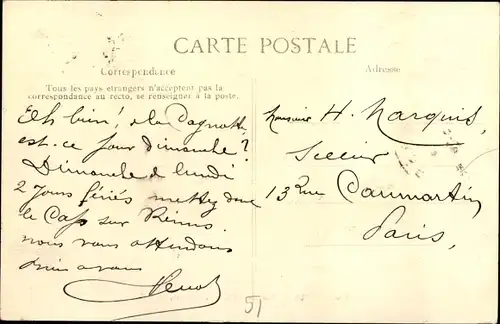 CARTE POSTALE
Correspondance
Adresse
Tous les pays étrangers n'acceptent pas la
correspondance au recto, se renseigner à la poste.
Eh bien! & la
est-ce pour dimanche?
Dimanche & lundi
2 jours fériés mettez donc
le Cap sur Reims
nous vous attendons
Monsieur H. Marquis,
Sellier
13 Rue Caumartin
Paris,
51